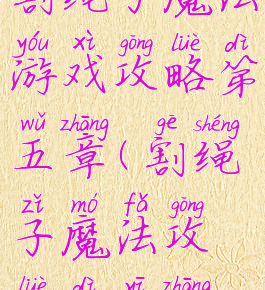 割绳子魔法
yóu xì gōng lüè dì
游戏攻略第
wǔ zhāng gē shéng
五章(割绳
zǐ mó fǎ gōng
子魔法攻
lüè dì yī zhāng